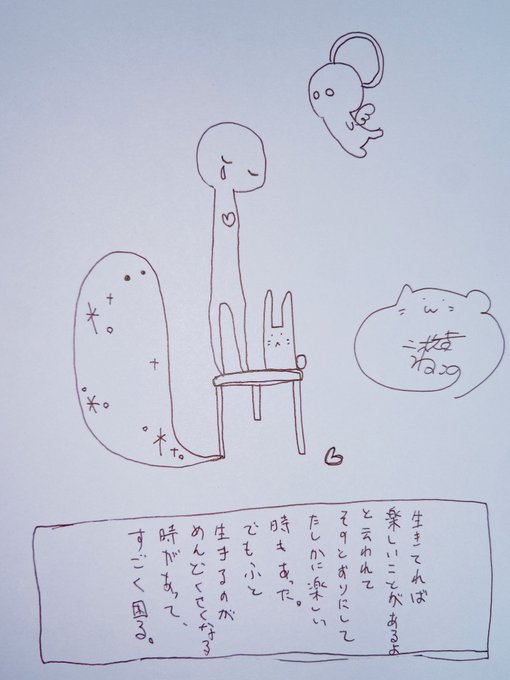 生きてれば
楽しいことがあるよ
と云われて
そのとおりにして
たしかに楽しい
時もあった。
でもふと
生きるのが
めんどくせくなる
時があって、
すごく困る。